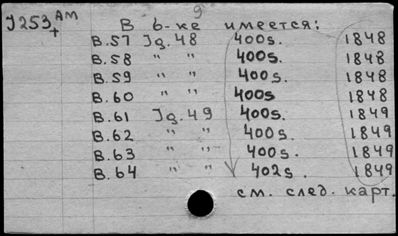 9
J253 AM
+
В б-ке имеется:
B.57 Jg.48 400s. 1848
B.58 " " 400s. 1848
B.59 " " 400s. 1848
B.60 " " 400s 1848
B.61 Jg.49 400s. 1849
B.62 " " 400s. 1849
B.63 " " 400s. 1849
B.64 " " 402s. 1849
см. след. карт.